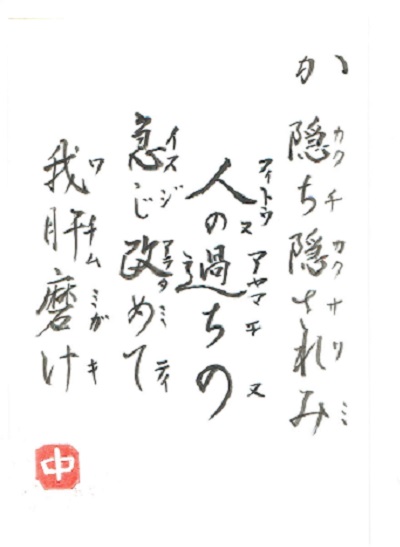 か 隠ち隠されみ
カ カクチカクサリミ
人の過ちの
フィトゥヌアヤマチヌ
急じ改めて
イスジアラタミティ
我肝磨け
ワチムミガキ
中